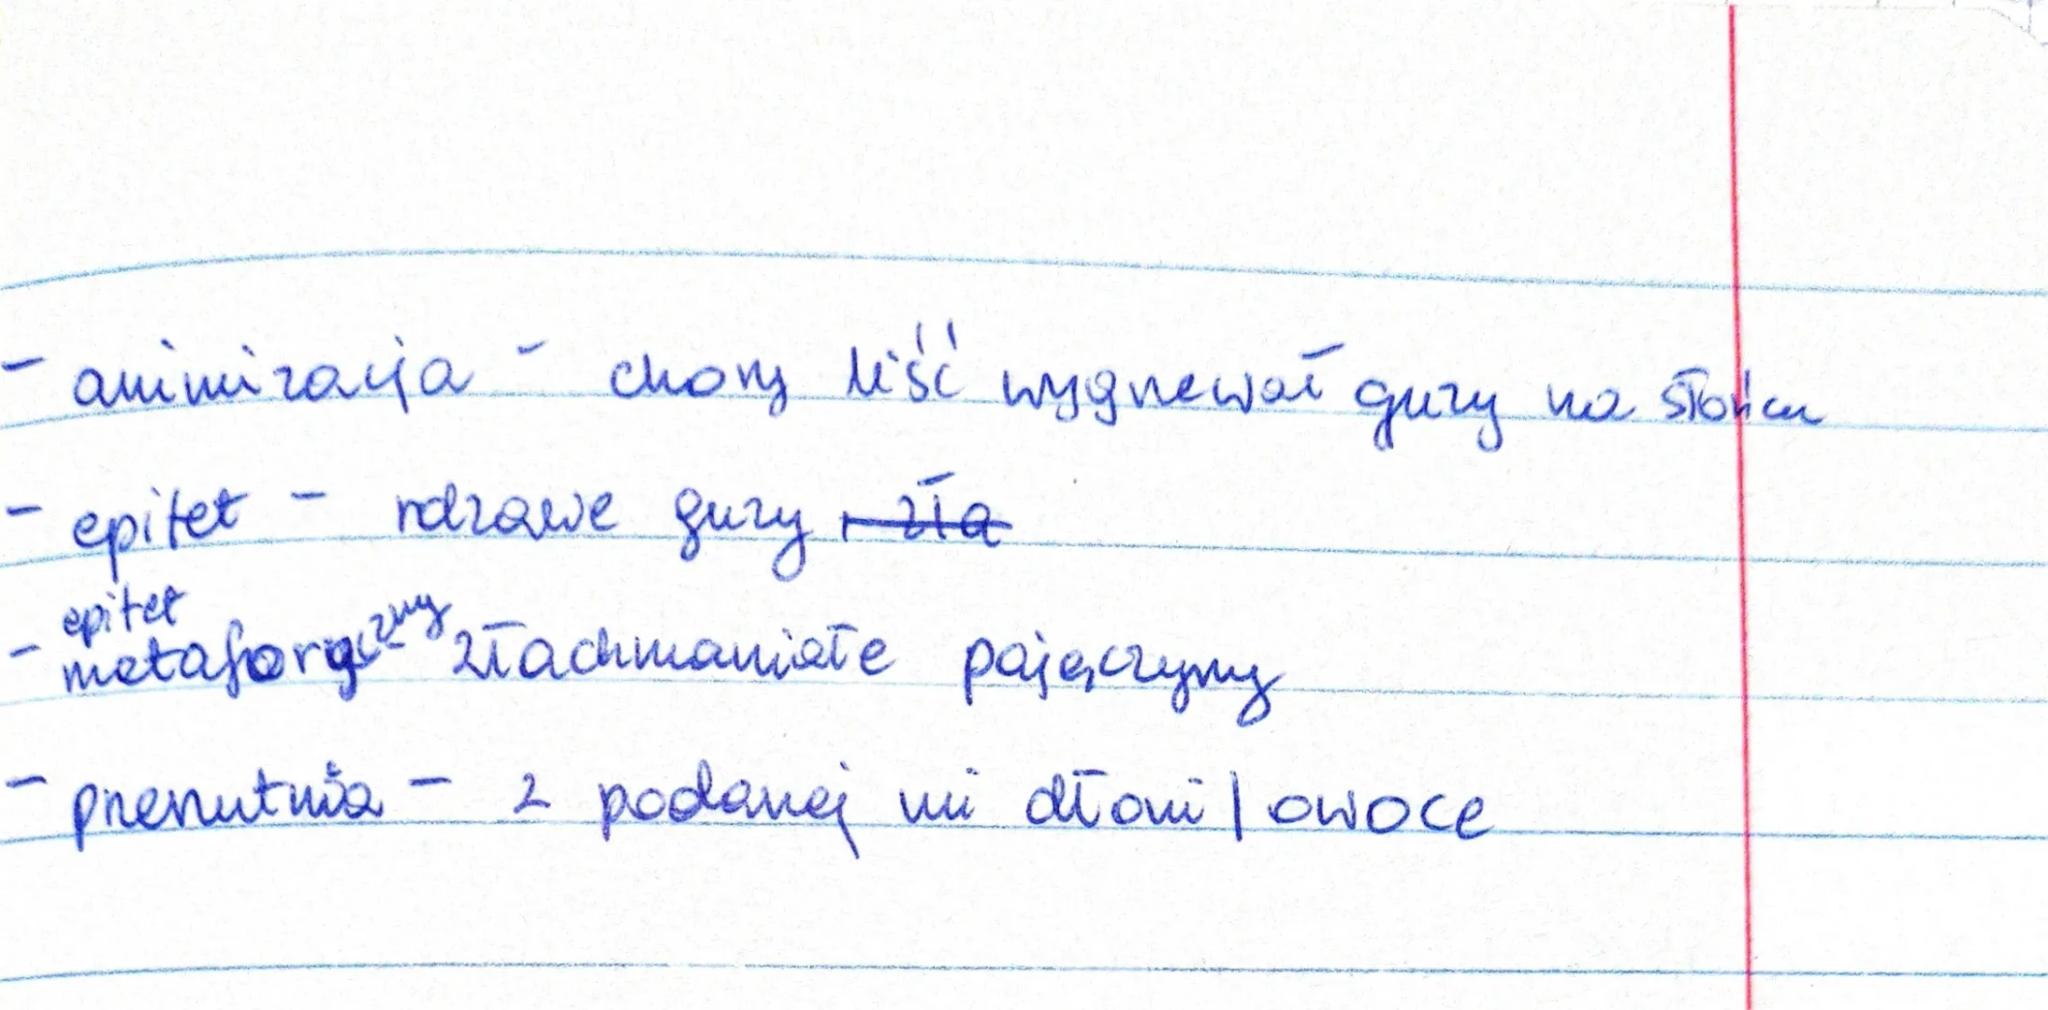 - animizacja - chory liść wygrzewał guzy na słońcu
- epitet - rdzawe guzy, zła
- epitet metaforyczny złachmaniałe pajęczyny
- przerzutnia - z podanej mi dłoni / owoce